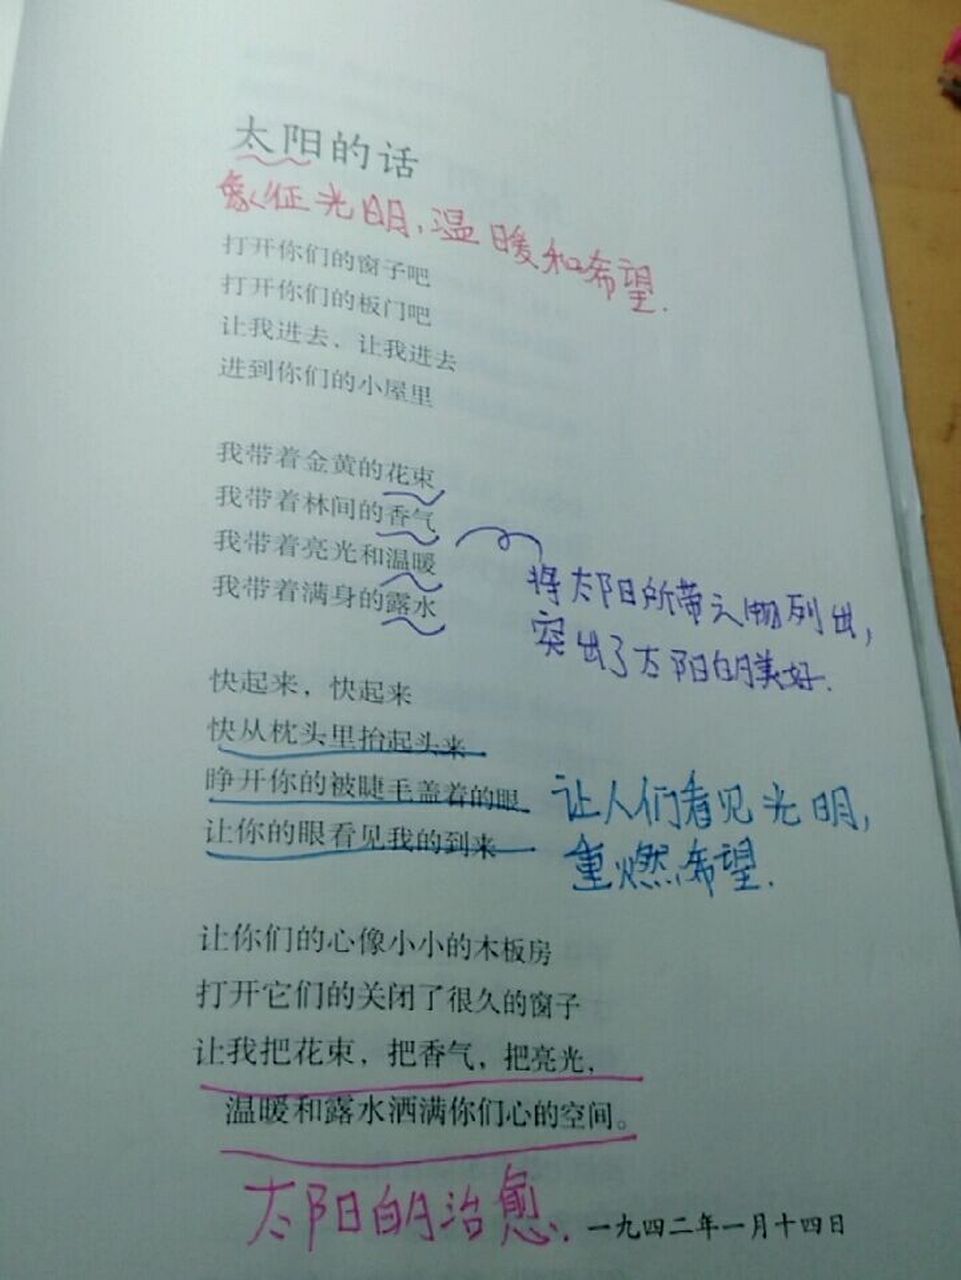 太阳的话
象征光明，温暖和希望.
打开你们的窗子吧
打开你们的板门吧
让我进去，让我进去
进到你们的小屋里
我带着金黄的花束
我带着林间的香气
我带着亮光和温暖
我带着满身的露水
将太阳所带之物列出，
突出了太阳的美好.
快起来，快起来
快从枕头里抬起头来
睁开你的被睫毛盖着的眼
让你的眼看见我的到来
让人们看见光明，
重燃希望.
让你们的心像小小的木板房
打开它们的关闭了很久的窗子
让我把花束，把香气，把亮光，
温暖和露水洒满你们心的空间。
太阳的治愈.
一九四二年一月十四日